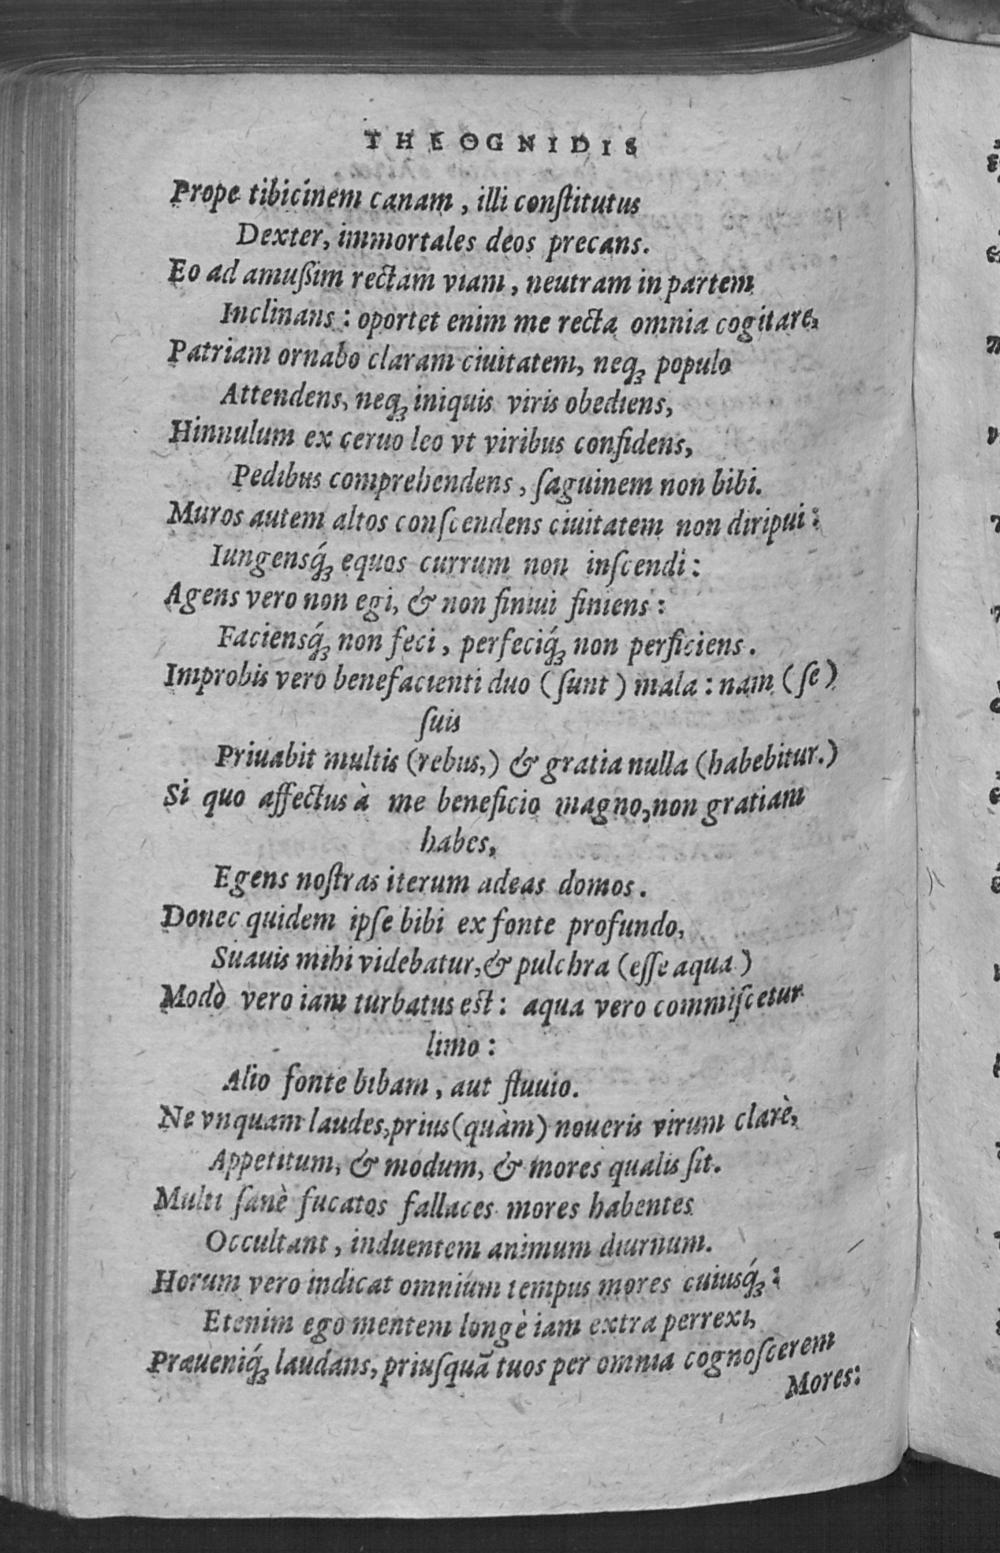 THEOGNIDIS
Prope tibicinem canam, illi conſtitutus
Dexter, immortales deos precans.
Eo ad amußim rectam viam, neutram in partem
Inclinans: oportet enim me recta omnia cogitare,
Patriam ornabo claram ciuitatem, neqꝫ populo
Attendens, neqꝫ iniquis viris obediens,
Hinnulum ex ceruo leo vt viribus confidens,
Pedibus comprehendens, ſaguinem non bibi.
Muros autem altos conſcendens ciuitatem non diripui:
Iungensq́ꝫ equos currum non inſcendi:
Agens vero non egi, & non finiui finiens:
Faciensq́ꝫ non feci, perfeciq́ꝫ non perficiens.
Improbis vero benefacienti duo (ſunt) mala: nam (ſe)
ſuis
Priuabit multis (rebus,) & gratia nulla (habebitur.)
Si quo affectus à me beneficio magno, non gratiam
habes,
Egens noſtras iterum adeas domos.
Donec quidem ipſe bibi ex fonte profundo,
Suauis mihi videbatur, & pulchra (eſſe aqua)
Modò vero iam turbatus eſt: aqua vero commiſcetur
limo:
Alio fonte bibam, aut fluuio.
Ne vnquam laudes, prius (quàm) noueris virum clarè,
Appetitum, & modum, & mores qualis ſit.
Multi ſanè fucatos fallaces mores habentes
Occultant, induentem animum diurnum.
Horum vero indicat omnium tempus mores cuiusq́ꝫ:
Etenim ego mentem longè iam extra perrexi,
Præueniq́ꝫ laudans, priuſquā tuos per omnia cognoſcerem
Mores: